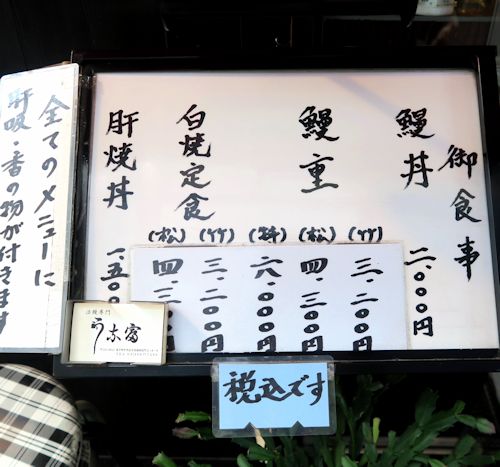 御食事
鰻丼 二、〇〇〇円
鰻重 (竹) 三、二〇〇円
(松) 四、三〇〇円
(特) 六、〇〇〇円
白焼定食 (竹) 三、二〇〇
(松) 四、三〇〇
肝焼丼 一、五〇〇
全てのメニューに
肝吸・香の物が付きます
活鰻専門
うな富
税込です